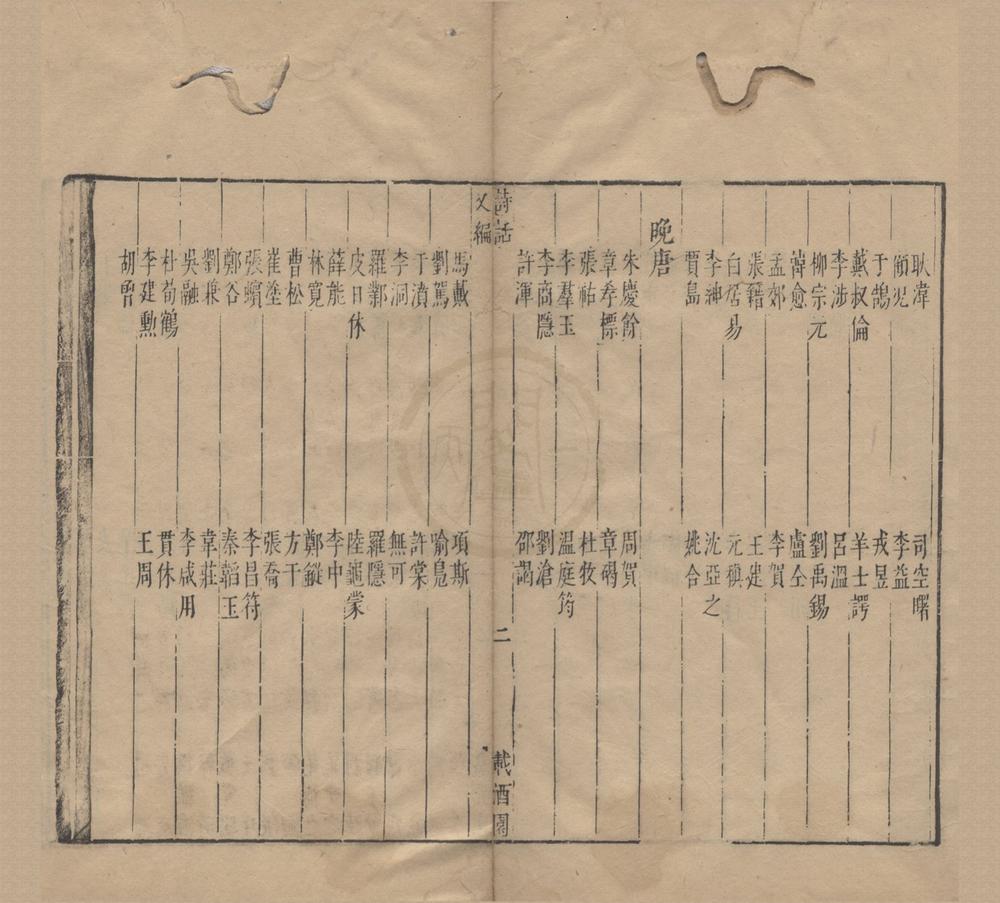 耿湋　司空曙
頋况　李益
于鵠　戎昱
戴叔倫　羊士諤
李涉　呂溫
柳宗元　劉禹錫
韓愈　盧仝
孟郊　李賀
張籍　王建
白居易　元稹
李紳　沈亞之
賈島　姚合
晚唐
朱慶餘　周賀
章孝標　章碣
張祐　杜牧
李羣玉　溫庭筠
李商隱　劉滄
許渾　邵謁
詩話　二　載酒園
又編
馬戴　項斯
劉駕　喻鳧
于濆　許棠
李洞　無可
羅鄴　羅隱
皮日休　陸龜蒙
薛能　李中
林寬　鄭鏦
曹松　方干
崔塗　張喬
張蠙　李昌符
鄭谷　秦韜玉
劉兼　韋莊
吳融　李咸用
杜荀鶴　貫休
李建勳　王周
胡曾